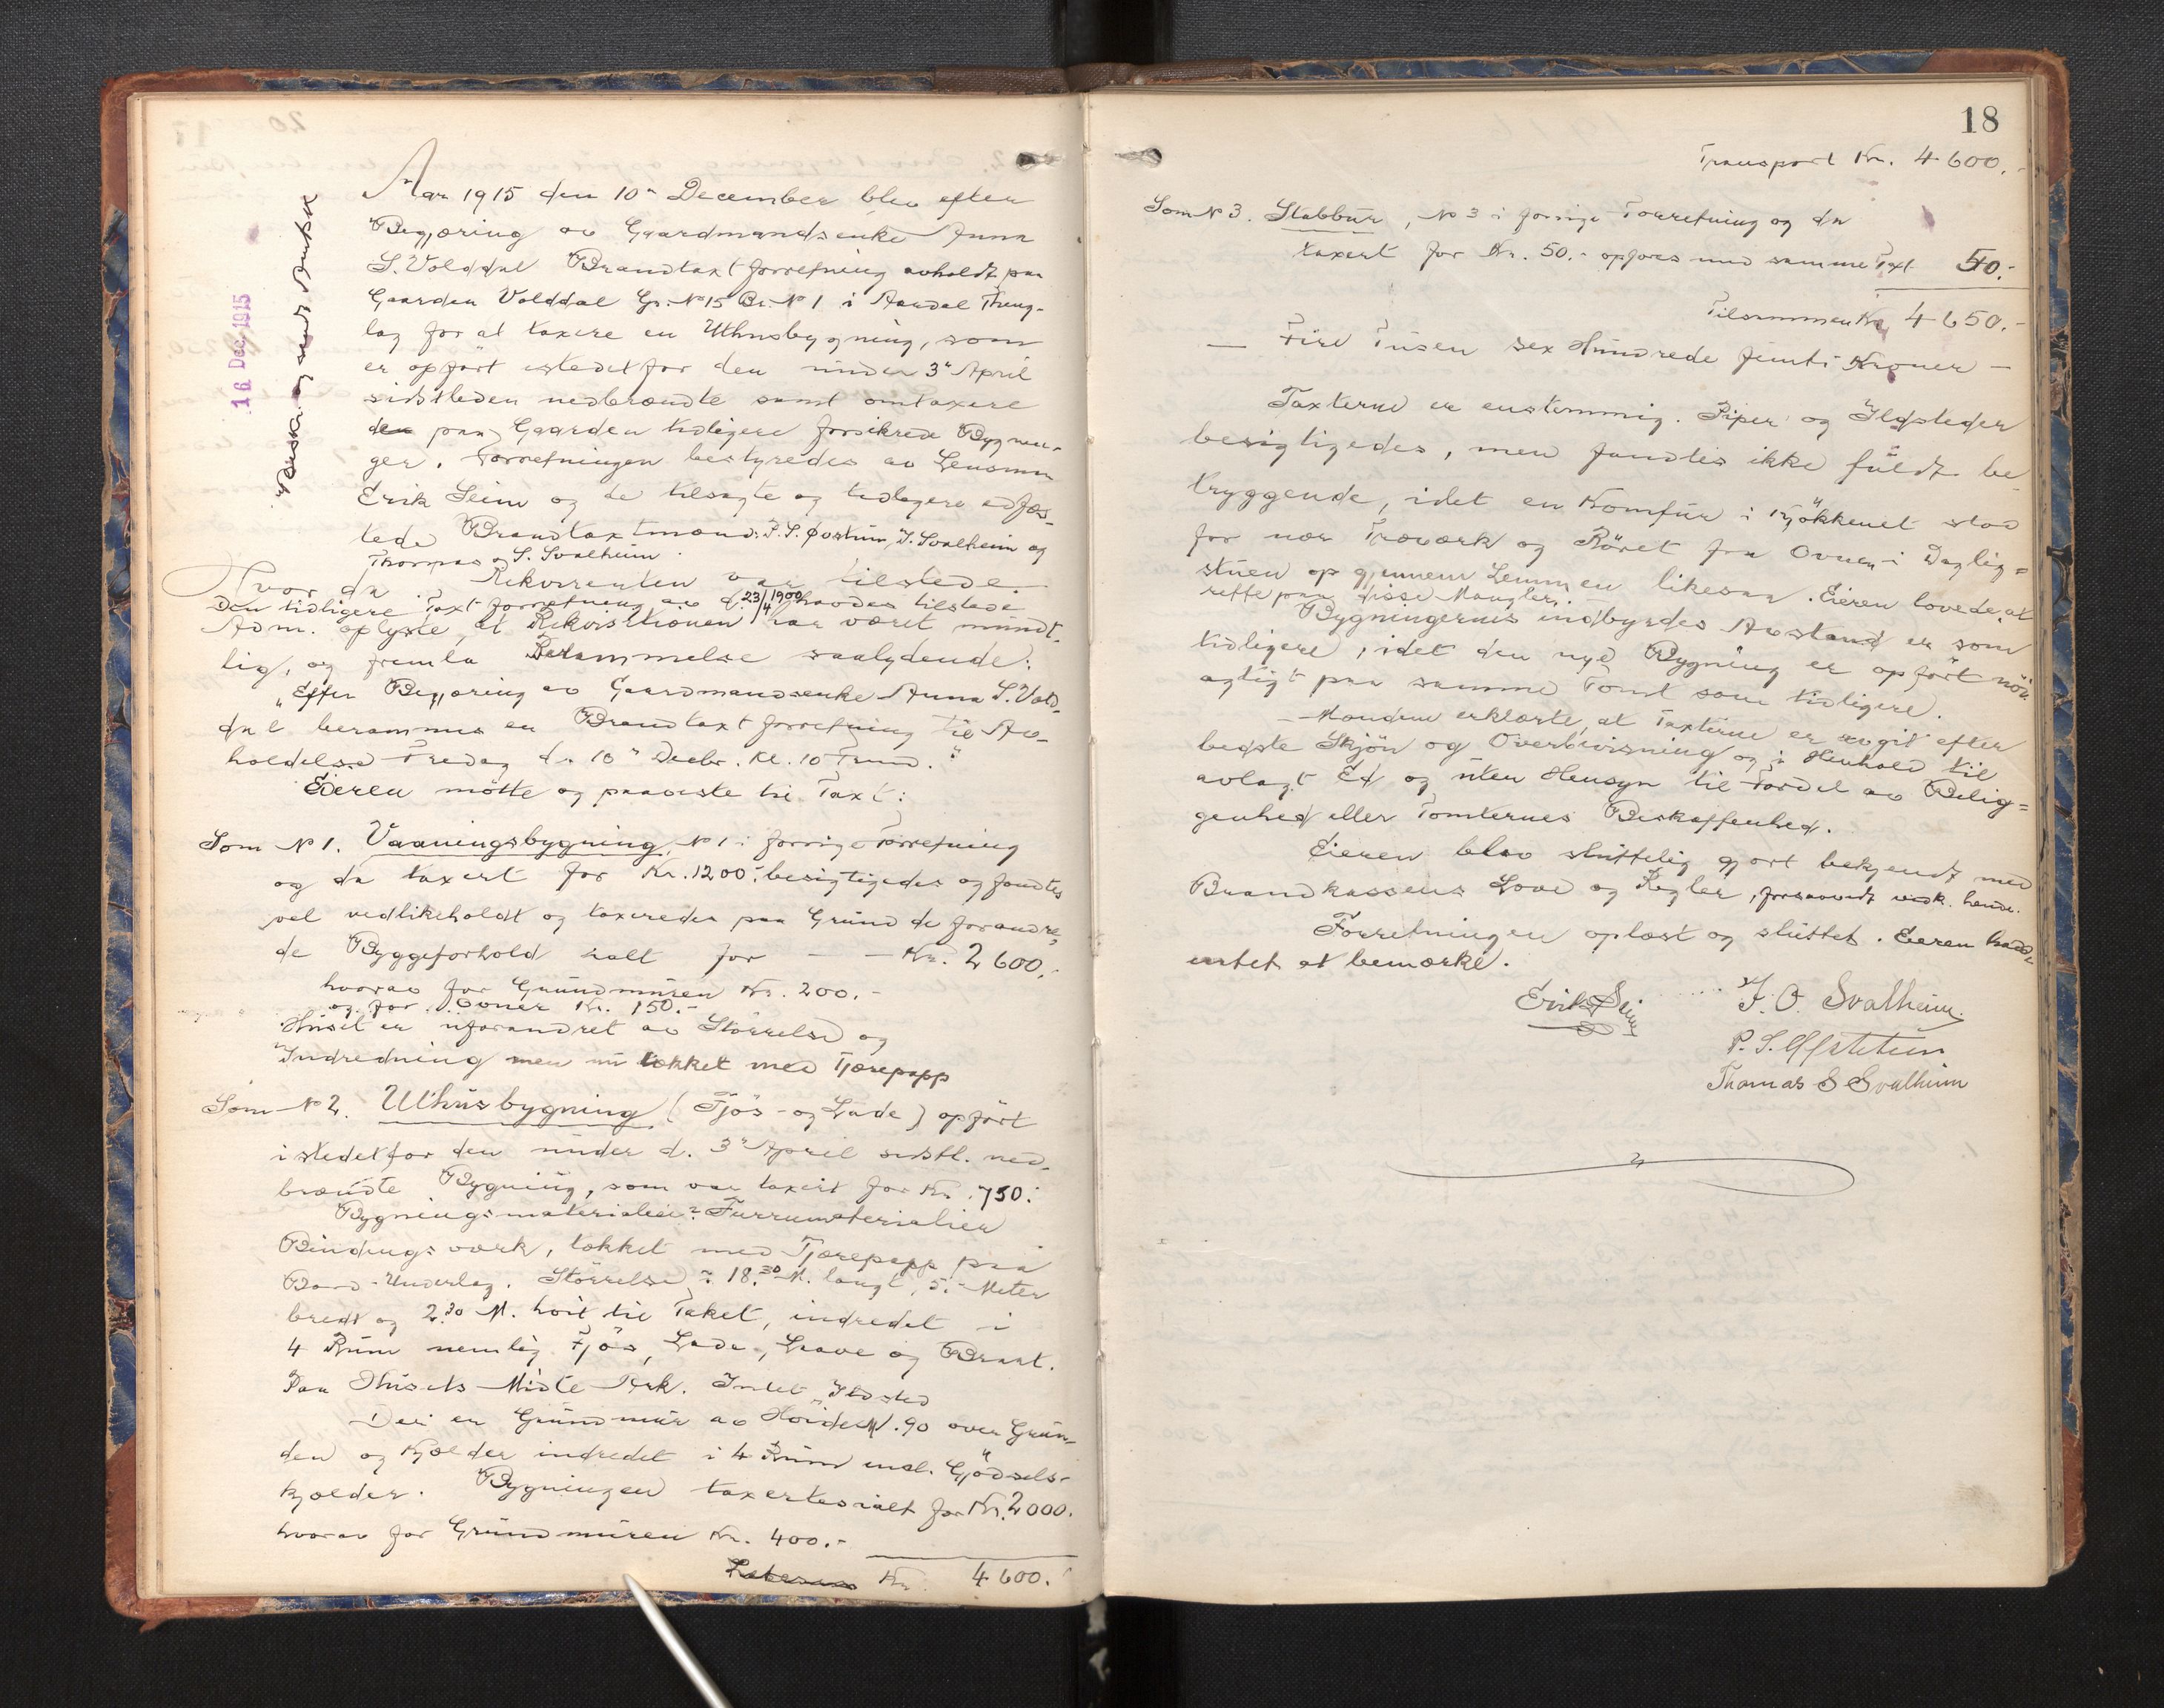 Aar 1915 den 10- December blev efter
Begjæring av Gaardmandsenke Anna
S. Volddal Brandtaxtforretning avholdt paa
Gaarden Volddal Gr. No 15 Br. No 1 i Aardal Thing-
lag for at taxere en Uthusbygning, som
er opført istedetfor den under 3" April
sidstleden nedbrændte samt omtaxere
den paa Gaarden tidligere forsikrede Bygnin-
ger. Forretningen bestyredes av Lensmn
Erik Seim og de tilsagte og tidligere edfæs-
tede Brandtaxtmænd: P. S. Øvstetun, J. Svalheim og
Thomas S. Svalheim.
Hvor da Rekvirenten var tilstede.
Den tidligere Taxtforretning av d. 23/4 1900 havdes tilstede
Adm. oplyste, at Rekvisitionen har været mundt-
lig, og fremla Berammelse saalydende:
"Efter Begjæring av Gaardmandsenke Anna S. Vold-
dal berammes en Brandtaxtforretning til Av-
holdelse Fredag d. 10" Decbr. Kl. 10 Frmd."
Eieren møtte og paaviste til Taxt:
Som No 1. Vaaningsbygning, No 1 i forrige Forretning
og da taxert for Kr. 1200.- besigtigedes og fandtes
vel vedlikeholdt og taxeredes paa Grund de forandre-
de Byggeforhold ialt for - - Kr. 2600.-
hvorav for Grundmuren Kr. 200.-
og for Ovner Kr. 150.-
Huset er uforandret av Størrelse og
Indredning men nu tækket med Tjærepapp
Som No 2. Uthusbygning (Fjøs- og Lade) opført
istedetfor den under d. 3" April sidstl. ned-
brændte Bygning, som var taxert for Kr. 750.-
Bygningsmaterialier: Furrumaterialier
Bindingsværk, tækket med Tjærepapp paa
Bord-Underlag. Størrelse: 18.30 M. langt, 5.- Meter
bredt og 2.30 M. høit til Taket, indredet i
4 Rum nemlig Fjøs, Lade, Laave og
Paa Husets Midte Ark. Intet Ildsted
Der er Grundmur av Høide M. 90 over Grun-
den og Kjælder indredet i 4 Rum incl. Gjødsels-
kjelder. Bygningen taxertes ialt for Kr. 2000.
hvorav for Grundmuren Kr. 400.-
Kr. 4600.-
16 Dec. 1915
18
Transport Kr. 4600.-
Som No 3. Stabbur, No 3 i forrige Forretning og da
taxert for Kr. 50.- opføres med samme Taxt 50.-
Tilsammen Kr. 4650.-
— Fire Tusen sex Hundrede femti Kroner —
Taxterne er enstemmig. Piper og Ildsteder
besigtigedes, men fandtes ikke fuldt be-
tryggende, idet en Komfur i Kjøkkenet stod
for nær Træværk og Røret fra Ovnen i Daglig-
stuen op gjennem Lemmen likesaa. Eieren lovede, at
rette paa disse Mangler.
Bygningernes indbyrdes Avstand er som
tidligere, idet den nye Bygning er opført nøi-
agtigt paa samme Tomt som tidligere.
- Mændene erklærte, at Taxterne er avgit efter
bedste Skjøn og Overbevisning og i Henhold til
avlagt Ed og uten Hensyn til Fordel av Belig-
genhed eller Tomternes Beskaffenhed.
Eieren blev sluttelig gjort bekjendt med
Brandkassens Love og Regler, forsaavidt vedk. hende.
Forretningen oplæst og sluttet. Eieren havde
intet at bemærke.
Erik Seim
J. O. Svalheim.
P. S. Øfstetun
Thomas S Svalheim